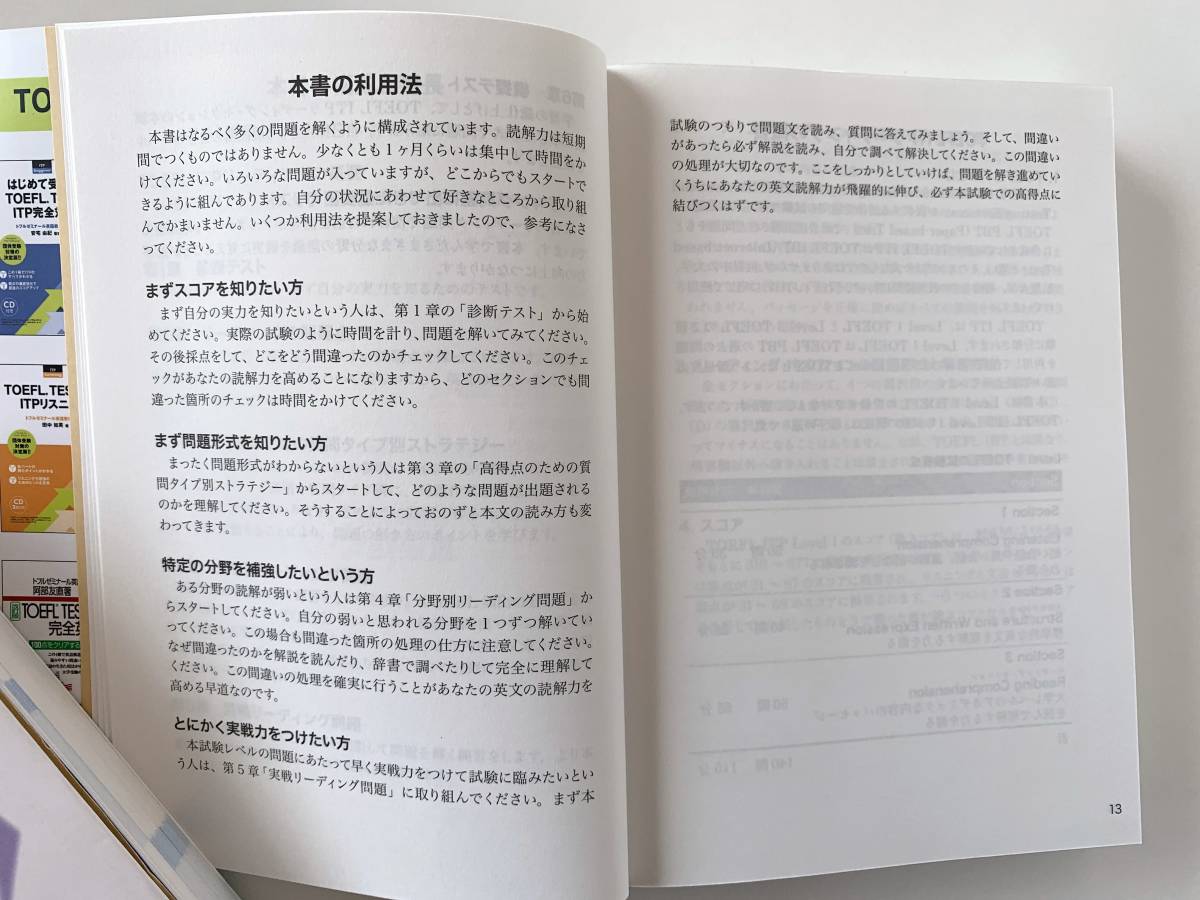 TO
はじめて受
TOEFL T
ITP完全対
トフルゼミナール英語
CD
付き
TOEFL TES
ITPリスニ
トフルゼミナール英語
田中 知英
CD
トフルゼミナール英語
阿部友直著
TOEFL TES
完全
100点をクリアする
本書の利用法
本書はなるべく多くの問題を解くように構成されています。読解力は短期
間でつくものではありません。少なくとも1ヶ月くらいは集中して時間をか
けてください。いろいろな問題が入っていますが、どこからでもスタートで
きるように組んであります。自分の状況にあわせて好きなところから取り組
んでかまいません。いくつか利用法を提案しておきましたので、参考になさ
ってください。
まずスコアを知りたい方
まず自分の実力を知りたいという人は、第1章の「診断テスト」から始
めてください。実際の試験のように時間を計り、問題を解いてみてください。
その後採点をして、どこをどう間違ったのかチェックしてください。このチェ
ックがあなたの読解力を高めることになりますから、どのセクションでも間
違った箇所のチェックは時間をかけてください。
まず問題形式を知りたい方
まったく問題形式がわからないという人は第3章の「高得点のための質
問タイプ別ストラテジー」からスタートして、どのような問題が出題される
のかを理解してください。そうすることによっておのずと本文の読み方も変
わってきます。
特定の分野を補強したいという方
ある分野の読解が弱いという人は第4章「分野別リーディング問題」か
らスタートしてください。自分の弱いと思われる分野を1つずつ解いてい
ってください。この場合も間違った箇所の処理の仕方に注意してください。
なぜ間違ったのかを解説を読んだり、辞書で調べたりして完全に理解して
ください。この間違いの処理を確実に行うことがあなたの英文の読解力を
高める早道なのです。
とにかく実戦力をつけたい方
本試験レベルの問題にあたって早く実戦力をつけて試験に臨みたいとい
う人は、第5章「実戦リーディング問題」に取り組んでください。まず本
試験のつもりで問題文を読み、質問に答えてみましょう。そして、間違い
があったら必ず解説を読み、自分で調べて解決してください。この間違い
の処理が大切なのです。ここをしっかりとしていけば、問題を解き進めてい
くうちにあなたの英文読解力が飛躍的に伸び、必ず本試験での高得点に
結びつくはずです。
13